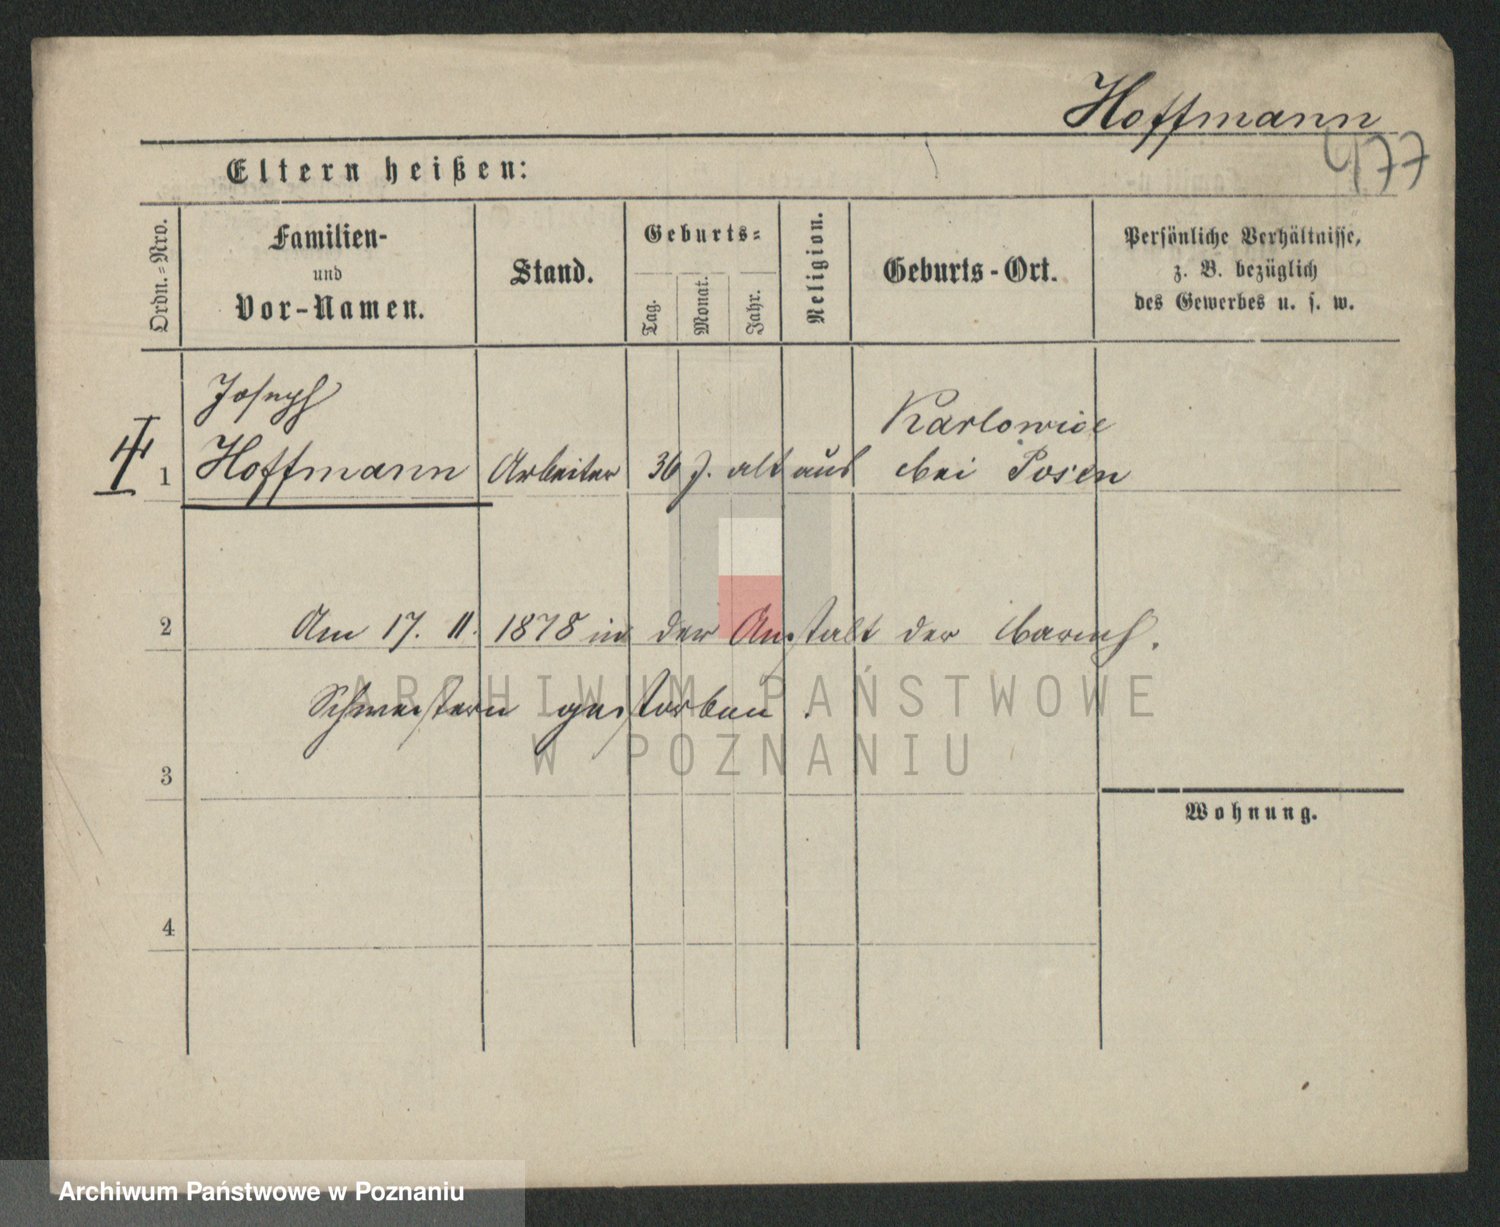 Hoffmann
477
Eltern heißen:
Ordn.-Nro.
Familien-
und
Vor-Namen.
Stand.
Geburts-
Tag.
Monat.
Jahr.
Religion.
Geburts-Ort.
Persönliche Verhältnisse,
z. B. bezüglich
des Gewerbes u. s. w.
Joseph
Karlowice
1 Hoffmann Arbeiter 36 J. alt aus bei Posen
2 Am 17. 11. 1878 in der Anstalt der barmh.
Schwestern gestorben.
3
Wohnung.
4
ARCHIWUM PAŃSTWOWE
W POZNANIU
Archiwum Państwowe w Poznaniu